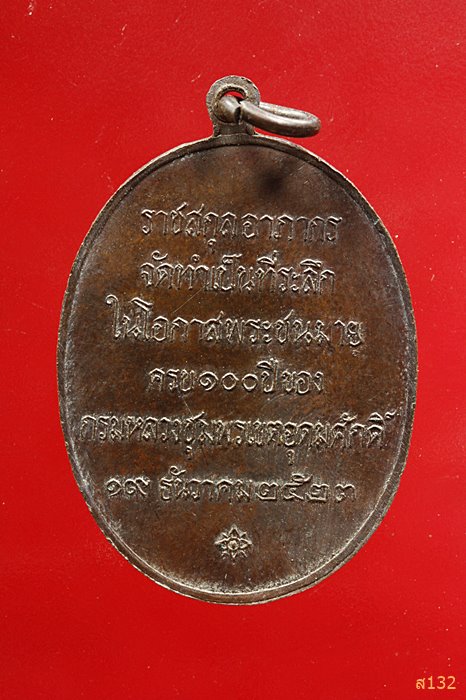 ราชสกุลอาภากร
จัดทำเป็นที่ระลึก
ในโอกาสพระชนมายุ
ครบ๑๐๐ปีของ
กรมหลวงชุมพรเขตอุดมศักดิ์
๑๙ ธันวาคม๒๕๒๓
ส132